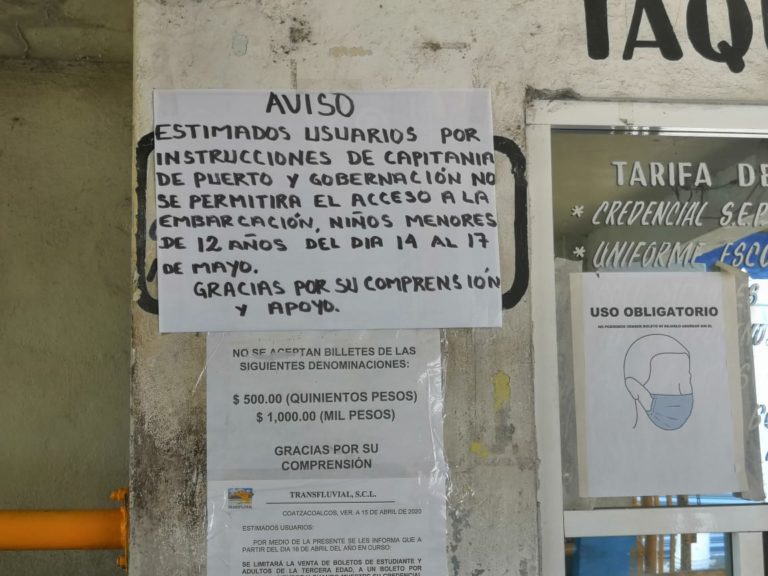 TAQ
AVISO
ESTIMADOS USUARIOS POR
INSTRUCCIONES DE CAPITANIA
DE PUERTO Y GOBERNACIÓN NO
SE PERMITIRA EL ACCESO A LA
EMBARCACIÓN, NIÑOS MENORES
DE 12 AÑOS DEL DIA 14 AL 17
DE MAYO.
GRACIAS POR SU COMPRENSIÓN
Y APOYO.
NO SE ACEPTAN BILLETES DE LAS
SIGUIENTES DENOMINACIONES:
$ 500.00 (QUINIENTOS PESOS)
$ 1,000.00 (MIL PESOS)
GRACIAS POR SU
COMPRENSIÓN
TRANSFLUVIAL, S.C.L.
COATZACOALCOS, VER. A 15 DE ABRIL DE 2020
ESTIMADOS USUARIOS:
POR MEDIO DE LA PRESENTE SE LES INFORMA QUE A
PARTIR DEL DIA 16 DE ABRIL DEL AÑO EN CURSO:
SE LIMITARÁ LA VENTA DE BOLETOS DE ESTUDIANTE Y
ADULTOS DE LA TERCERA EDAD, A UN BOLETO POR
TARIFA DE
* CREDENCIAL S.E.P
* UNIFORME ESCO
USO OBLIGATORIO